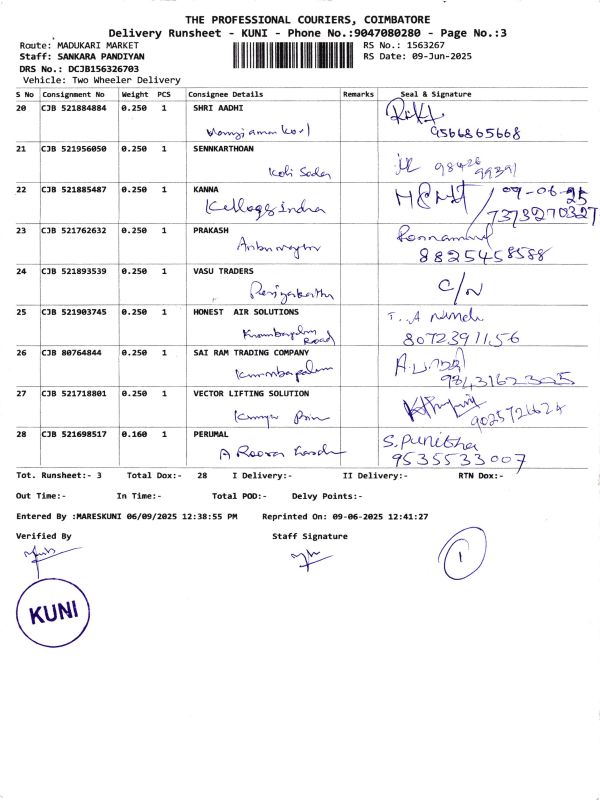 THE PROFESSIONAL COURIERS, COIMBATORE
Delivery Runsheet - KUNI - Phone No.:9047080280 - Page No.:3
Route: MADUKARI MARKET RS No.: 1563267
Staff: SANKARA PANDIYAN RS Date: 09-Jun-2025
DRS No.: DCJB156326703
Vehicle: Two Wheeler Delivery
S No Consignment No Weight PCS Consignee Details Remarks Seal & Signature
20 CJB 521884884 0.250 1 SHRI AADHI
9566865668
21 CJB 521956050 0.250 1 SENNKARTHOAN
98426
99391
22 CJB 521885487 0.250 1 KANNA 09-06-25
Kelloggs India 7373270327
23 CJB 521762632 0.250 1 PRAKASH
8825458588
24 CJB 521893539 0.250 1 VASU TRADERS C/N
25 CJB 521903745 0.250 1 HONEST AIR SOLUTIONS
Road 8072391156
26 CJB 80764844 0.250 1 SAI RAM TRADING COMPANY
9843162305
27 CJB 521718801 0.250 1 VECTOR LIFTING SOLUTION
9025726624
28 CJB 521698517 0.160 1 PERUMAL S.Punitha
9535533007
Tot. Runsheet:- 3 Total Dox:- 28 I Delivery:- II Delivery:- RTN Dox:-
Out Time:- In Time:- Total POD:- Delvy Points:-
Entered By :MARESKUNI 06/09/2025 12:38:55 PM Reprinted On: 09-06-2025 12:41:27
Verified By Staff Signature
1
KUNI